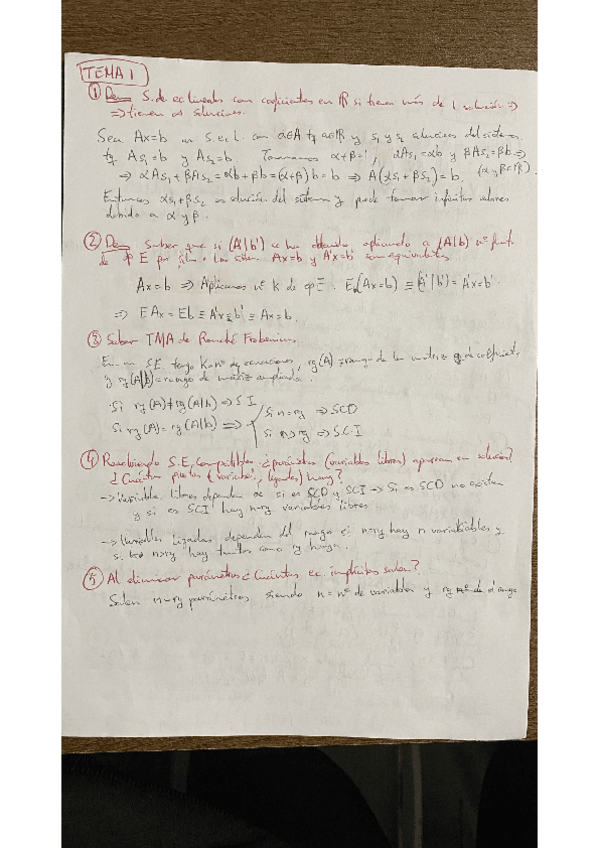 TEMA 1
① Dem S. de ec lineales con coeficientes en ℝ si tienen más de 1 solución ⇒
⇒ tienen ∞ soluciones.
Sea Ax=b un S.ec.l. con a∈A tq a∈ℝ y s₁ y s₂ soluciones del sistema
tq As₁=b y As₂=b. Tomamos α+β=1, αAs₁=αb y βAs₂=βb ⇒
⇒ αAs₁+βAs₂=αb+βb=(α+β)b=b ⇒ A(αs₁+βs₂)=b. (α y β∈ℝ)
Entonces αs₁+βs₂ es solución del sistema y puede tomar infinitos valores
debido a α y β.
② Dem Saber que si (A'|b') se ha obtenido aplicando a (A|b) nº finito
de φE por filas los sistem Ax=b y A'x=b' son equivalentes
Ax=b ⇒ Aplicamos nº K de φE. E(Ax=b) ≡ (A'|b') = A'x=b'.
⇒ EAx=Eb ≡ A'x=b' ≡ Ax=b.
③ Saber TMA de Rouché Frobenius.
En un S.E. tengo K nº de ecuaciones, rg(A)=rango de la matriz de coeficients
y rg(A|b)=rango de matriz ampliada.
Si rg(A)≠rg(A|b) ⇒ SI
Si rg(A)=rg(A|b) ⇒
Si n=rg ⇒ SCD
Si n>rg ⇒ SCI
④ Resolviendo S.E. Compatibles ¿parámetros (variables libres) aparecen en solución?
¿Cuántas (variables ligadas) hay?
→ Variables libres dependen de si es SCD y SCI → Si es SCD no existen
y si es SCI hay n-rg variables libres
→ Variables ligadas dependen del rango si n=rg hay n variables y
si n>rg hay tantas como rg haya.
⑤ Al eliminar parámetros ¿Cuántas ec. implícitas salen?
Salen n-rg parámetros siendo n=nº de variables y rg el rango